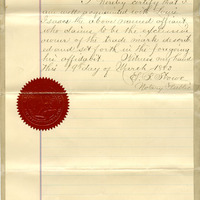 I hereby certify that I
am well acquainted with
the above named affiant,
who claims to be the exclusive
owner of the trade mark descri
ed and set forth in the foregoing
affidavit. Witness my hand
this 19th day of March 1892
Notary Public